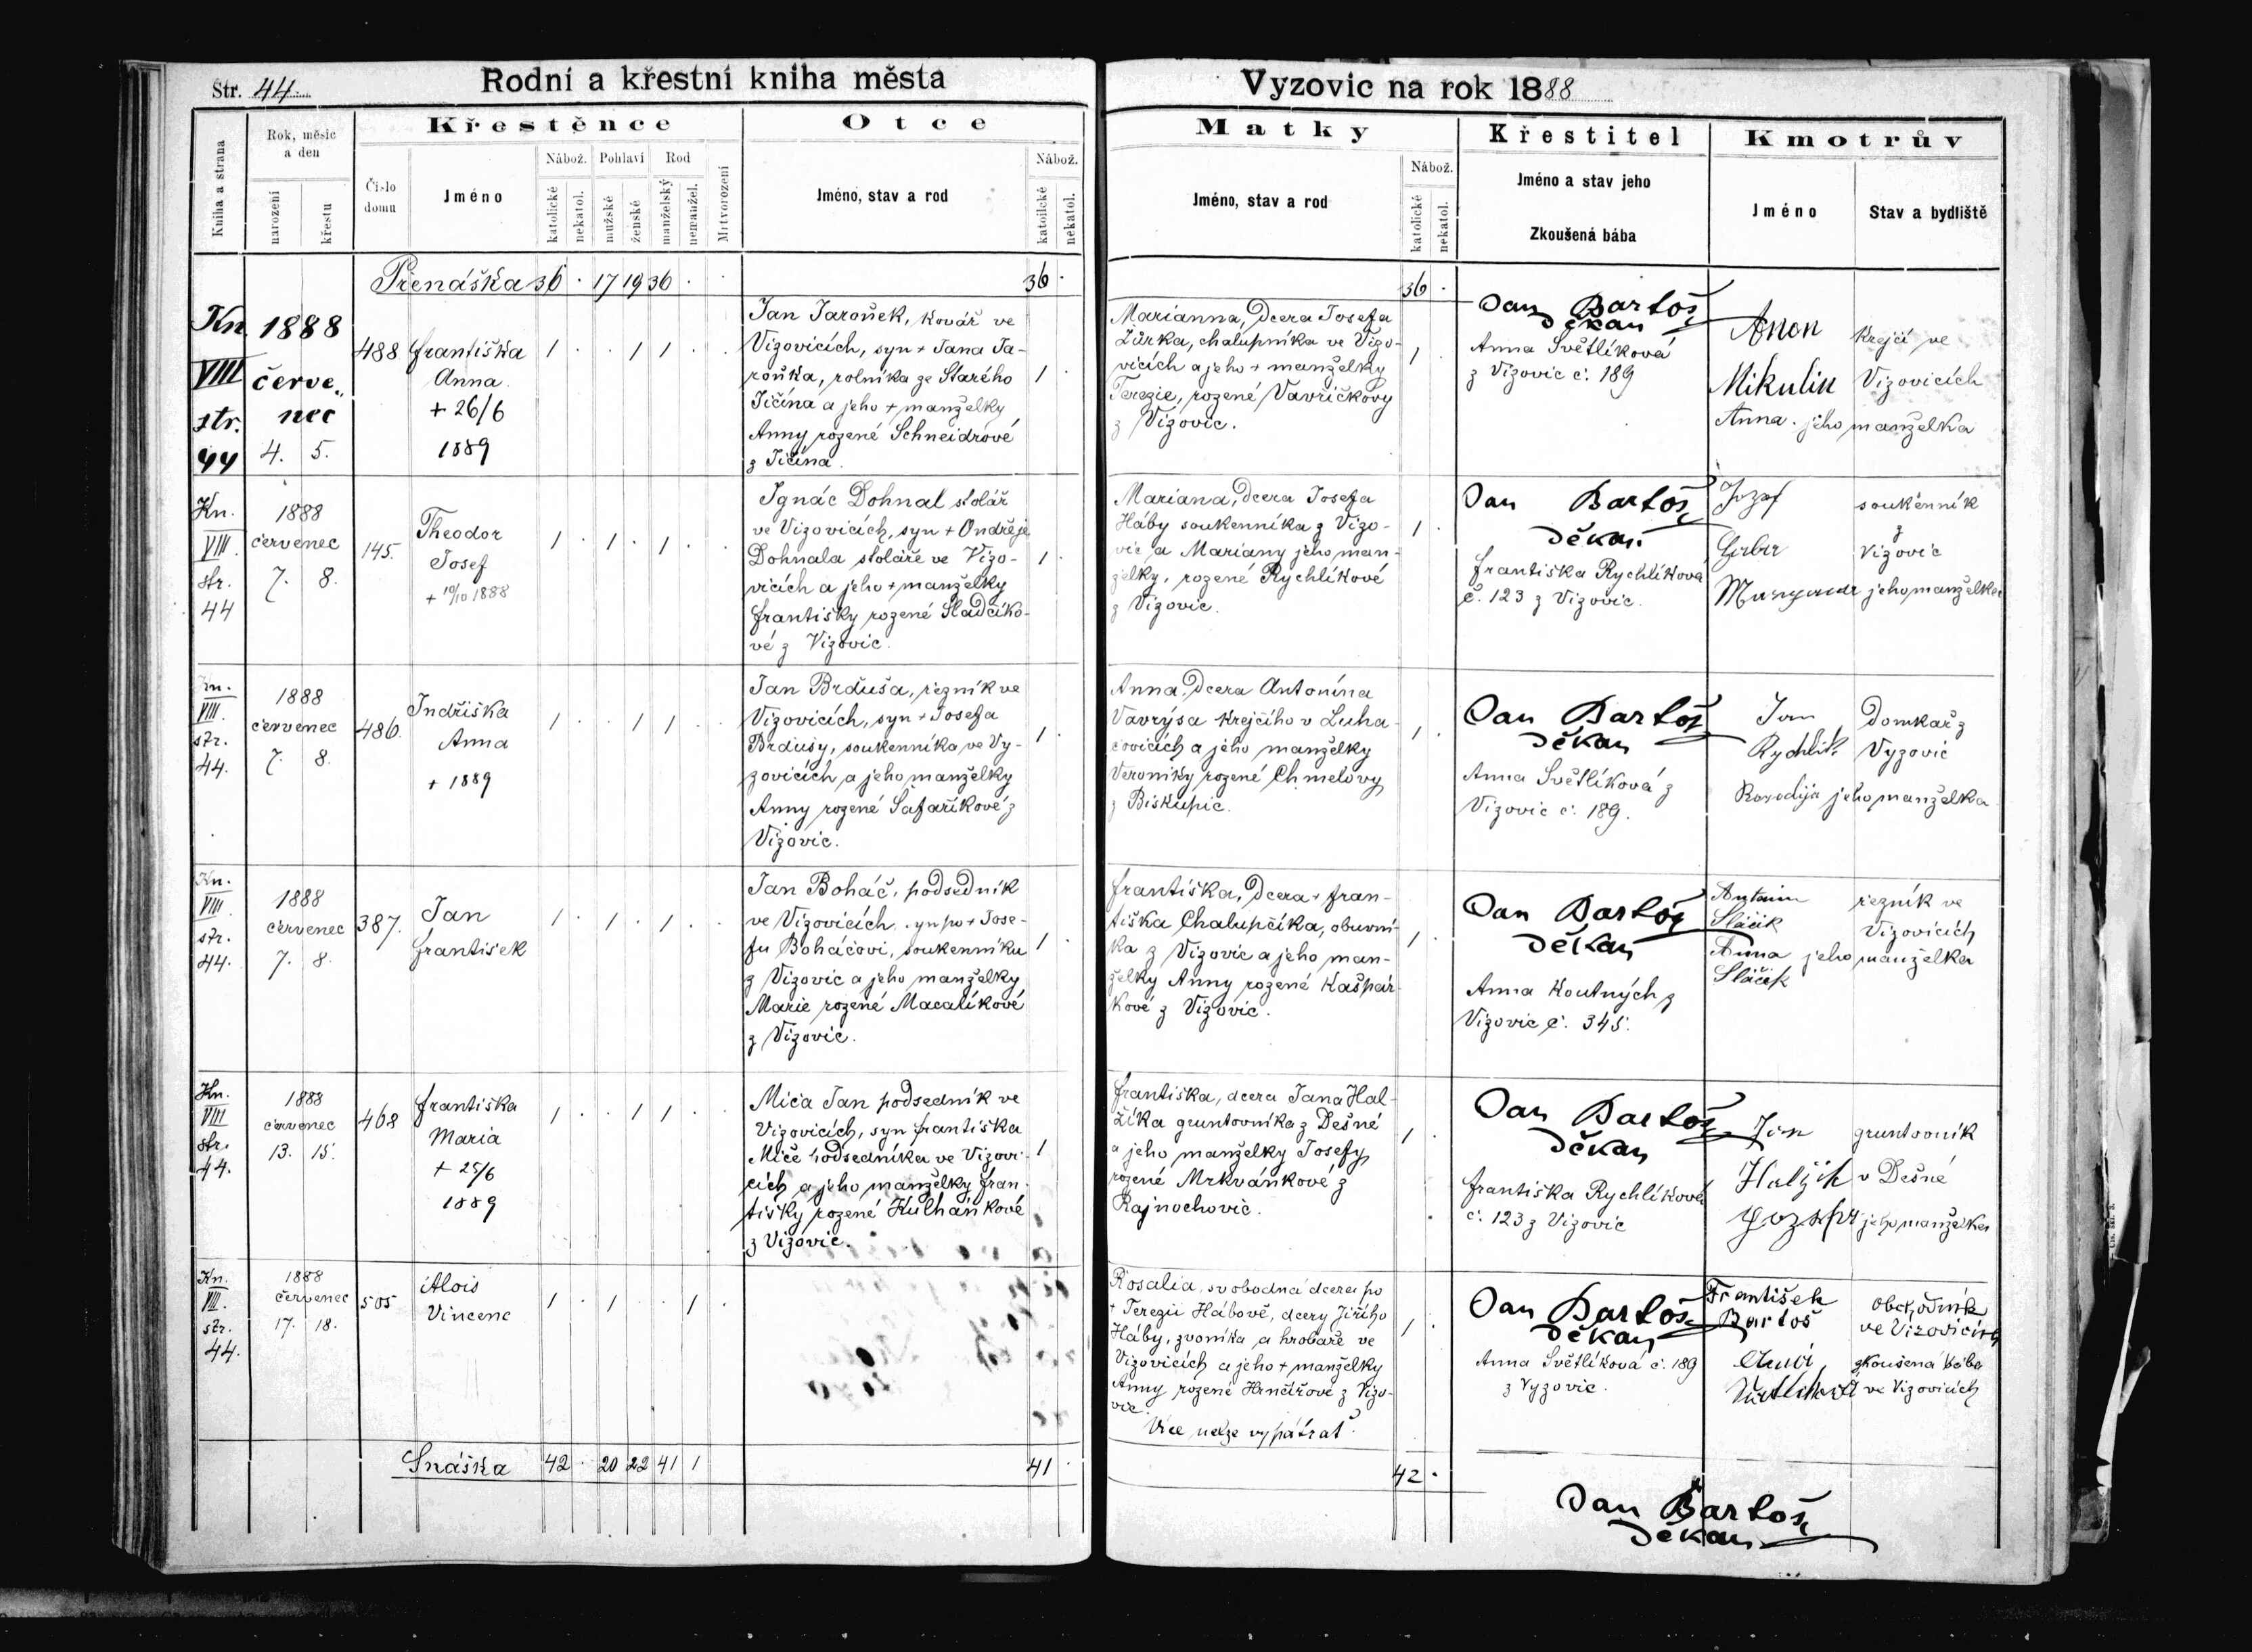 Str. 44.
Rodní a křestní kniha města
Vyzovic na rok 1888
Kniha a strana
Rok, měsíc
a den
narození
křestu
Křestěnce
Číslo
domu
Jméno
Nábož.
Pohlaví
Rod
katolické
nekatol.
mužské
ženské
manželský
nemanžel.
Mrtvorození
Otce
Jméno, stav a rod
Nábož.
katolické
nekatol.
Matky
Jméno, stav a rod
Nábož.
katolické
nekatol.
Křestitel
Jméno a stav jeho
Zkoušená bába
Kmotrův
Jméno
Stav a bydliště
Přenáška 36 . 17 19 36 . .
36 .
36 .
Kn.
VIII
str.
44
1888
červe-
nec
4. 5.
488
Františka
Anna
+ 26/6
1889
1 . . 1 1 . .
Jan Jaroněk, kovář ve
Vizovicích, syn + Jana Ja-
roňka, rolníka ze Starého
Jičína a jeho + manželky
Anny rozené Schneidrové
z Jičína.
1 .
Marianna, dcera Josefa
Žůrka, chalupníka ve Vizo-
vicích a jeho + manželky
Terezie, rozené Vavřičkovy
z Vizovic.
1 .
Jan Bartoš,
děkan
Anna Světlíková
z Vizovic č. 189
Mikulin
Anna
krejčí ve
Vizovicích
jeho manželka
Kn.
VIII.
str.
44
1888
červenec
7. 8.
145.
Theodor
Josef
+ 10/10 1888
1 . 1 . 1 . .
Ignác Dohnal stolář
ve Vizovicích, syn + Ondřeje
Dohnala stoláře ve Vizo-
vicích a jeho + manželky
Františky rozené Sladčíko-
vé z Vizovic.
1 .
Mariana, dcera Josefa
Háby soukenníka z Vizo-
vic a Mariany jeho man-
želky, rozené Rychlíkové
z Vizovic.
1 .
Jan Bartoš,
děkan
Františka Rychlíková
č. 123 z Vizovic.
Jozef
soukenník
z
Vizovic
jeho manželka
Kn.
VIII.
str.
44.
1888
červenec
7. 8.
486.
Jndřiška
Anna
+ 1889
1 . . 1 1 . .
Jan Brduša, řezník ve
Vizovicích, syn + Josefa
Brdušy, soukenníka ve Vy-
zovicích a jeho manželky
Anny rozené Šafaříkové z
Vizovic.
1 .
Anna, dcera Antonína
Vavrýsa krejčího v Luha-
čovicích a jeho manželky
Veroniky rozené Chmelovy
z Biskupic.
1 .
Jan Bartoš
děkan
Anna Světlíková z
Vizovic č. 189.
Jan
Rychlík
Rozalija
Domkař z
Vyzovic
jeho manželka
Kn.
VIII
str.
44.
1888
červenec
7. 8.
387.
Jan
František
1 . 1 . 1 . .
Jan Boháč, podsedník
ve Vizovicích, syn po + Jose-
fu Boháčovi, soukenníku
z Vizovic a jeho manželky
Marie rozené Macalíkové
z Vizovic.
1 .
Františka, dcera + Fran-
tiška Chalupčíka, obuvní-
ka z Vizovic a jeho man-
želky Anny rozené Kašpár-
kové z Vizovic.
1 .
Jan Bartoš
děkan
Anna Koutných z
Vizovic č. 345.
Slačik
Anna
Slačik
řezník ve
Vizovicích
jeho manželka
Kn.
VIII
str.
44.
1888
červenec
13. 15.
468
Františka
Maria
+ 25/6
1889
1 . . 1 1 . .
Miča Jan podsedník ve
Vizovicích, syn Františka
Miče podsedníka ve Vizovi-
cích a jeho manželky Fran-
tišky rozené Kulhánkové
z Vizovic.
1 .
Františka, dcera Jana Hal-
žíka gruntovníka z Dešné
a jeho manželky Josefy
rozené Mrkvánkové z
Rajnochovic.
1 .
Jan Bartoš
děkan
Františka Rychlíková
č. 123 z Vizovic
Jan
Halžik
gruntovník
v Dešné
jeho manželka
Kn.
VIII.
str.
44.
1888
červenec
17. 18.
505
Alois
Vincenc
1 . 1 . . 1 .
Rosalia, svobodná dcera po
+ Terezii Hábově, dcery Jiřího
Háby, zvoníka a hrobaře ve
Vizovicích a jeho + manželky
Anny rozené Hrnčířové z Vizo-
vic.
Více nelze vypátrat.
1 .
Jan Bartoš
děkan
Anna Světlíková č. 189
z Vyzovic.
František
Bartoš
obchodník
ve Vizovicích
zkoušená bába
ve Vizovicích
Snáška 42 . 20 22 41 1
41 .
42 .
Jan Bartoš,
děkan